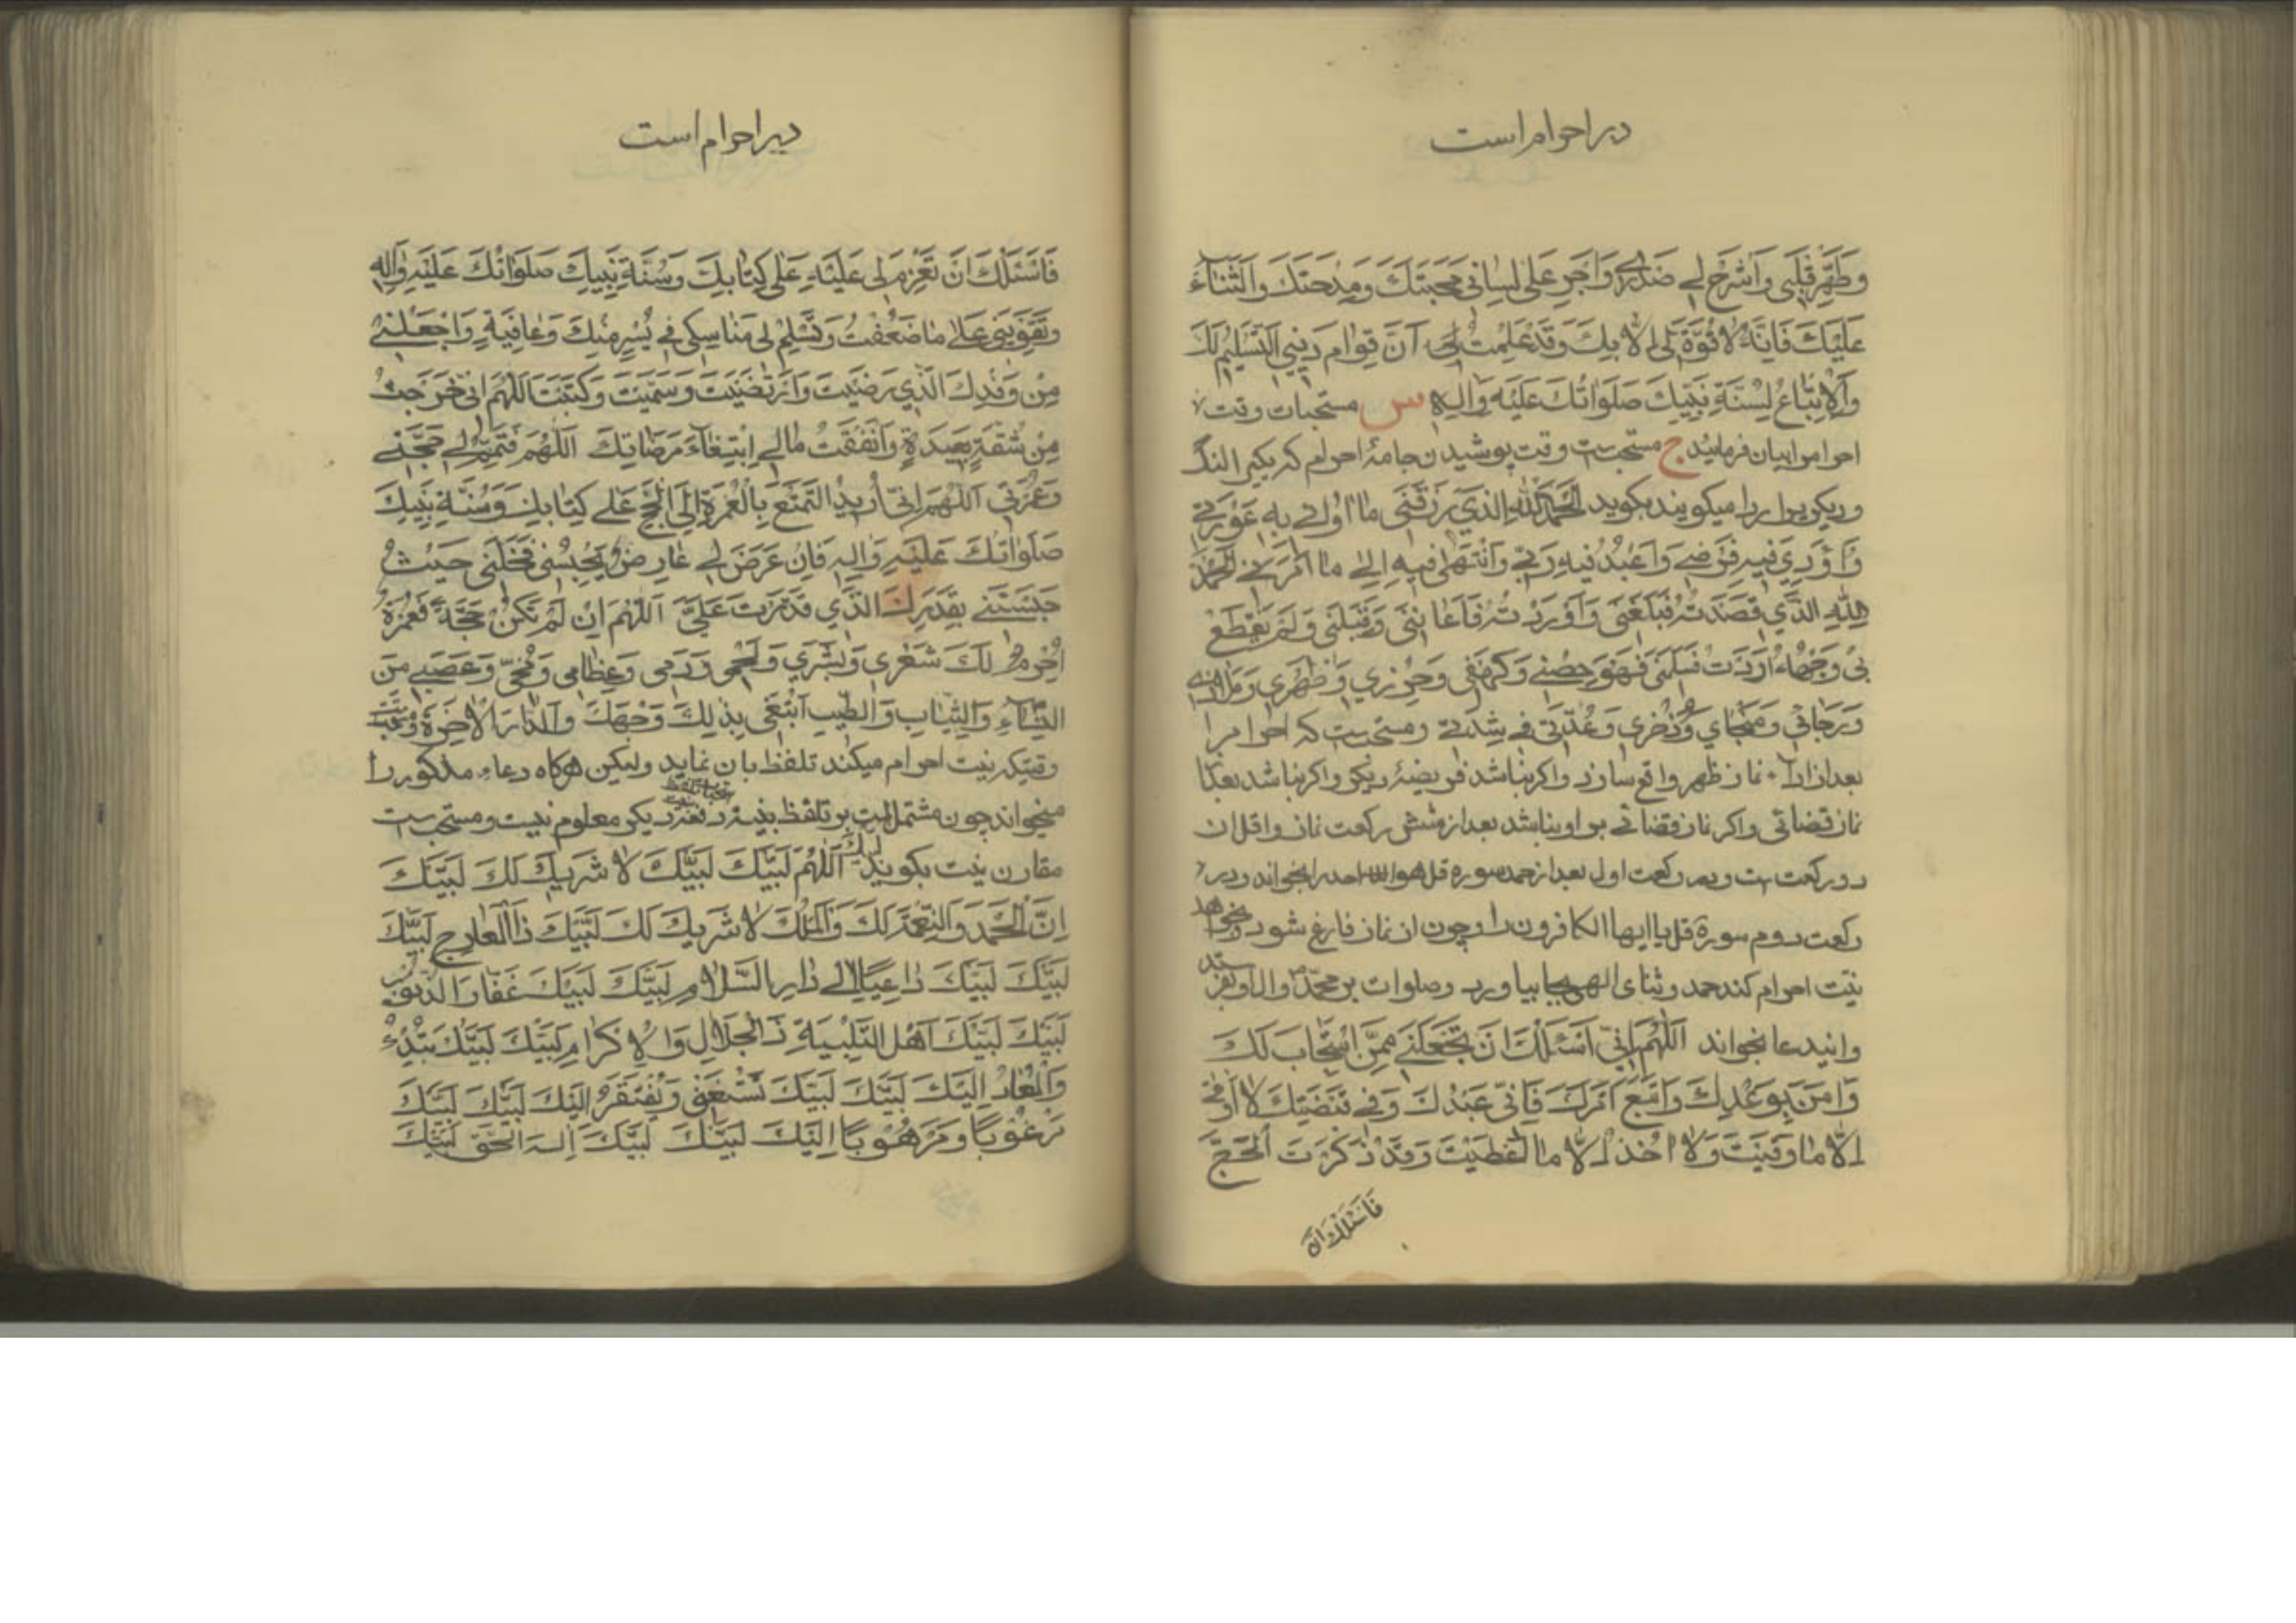 در احرام است
وَطَهِّرْ قَلْبي وَاشْرَحْ لي صَدْري وَاَجْرِ عَلى لِساني مَحَبَّتَكَ وَمِدْحَتَكَ وَالثَّناءَ
عَلَيْكَ فَاِنَّهُ لا قُوَّةَ لي اِلّا بِكَ وَقَدْ عَلِمْتُ اَنَّ قِوامَ ديني التَّسْليمُ لَكَ
وَالْاِتِّباعُ لِسُنَّةِ نَبِيِّكَ صَلَواتُكَ عَلَيْهِ وَالِهِ س مستحبات وقت
احرام را بیان فرمائید ج مستحب است وقت پوشیدن جامهٔ احرام که یکی را لنگ
و دیگری را ردا میگویند بگوید اَلْحَمْدُ لِلّهِ الَّذي رَزَقَني ما اُواري بِه عَوْرَتي
وَاُؤَدّي فيهِ فَرْضي وَاَعْبُدُ فيهِ رَبّي وَاَنْتَهي فيهِ اِلى ما اَمَرَني اَلْحَمْدُ
لِلّهِ الَّذي قَصَدْتُهُ فَبَلَّغَني وَاَرَدْتُهُ فَاَعانَني وَقَبِلَني وَلَمْ يَقْطَعْ
بي وَجْهَهُ اَرَدْتُ فَسَلَّمَني فَهُوَ حِصْني وَكَهْفي وَحِرْزي وَظَهْري وَمَلاذي
وَرَجائي وَمَنْجاي وَذُخْري وَعُدَّتي في شِدَّتي و مستحب است که احرام را
بعد از اداء نماز ظهر واقع سازد و اگر نباشد فریضهٔ دیگر و اگر نباشد بعد از
نماز قضائی و اگر نماز قضائی بر او نباشد بعد از شش رکعت نماز و اقل ان
دو رکعت است و در رکعت اول بعد از حمد سوره قل هو الله احد را بخواند و در
رکعت دوم سورة قل یا ایها الکافرون را و چون از نماز فارغ شود و بخواهد
نیّت احرام کند حمد و ثنای الهی بجا بیاورد و صلوات بر محمّد و ال او بفرستد
و این دعا بخواند اَللّهُمَّ اِنّي اَسْئَلُكَ اَنْ تَجْعَلَني مِمَّنِ اسْتَجابَ لَكَ
وَامَنَ بِوَعْدِكَ وَاتَّبَعَ اَمْرَكَ فَاِنّي عَبْدُكَ وَفي قَبْضَتِكَ لا اُوقى
اِلّا ما وَقَيْتَ وَلا اخُذُ اِلّا ما اَعْطَيْتَ وَقَدْ ذَكَرْتَ الْحَجَّ
فَاَسْئَلُكَ اَنْ
در احرام است
فَاَسْئَلُكَ اَنْ تَعْزِمَ لي عَلَيْهِ عَلى كِتابِكَ وَسُنَّةِ نَبِيِّكَ صَلَواتُكَ عَلَيْهِ وَالِهِ
وَتُقَوِّيَني عَلى ما ضَعُفْتُ وَتُسَلِّمَ لي مَناسِكي في يُسْرٍ مِنْكَ وَعافِيَةٍ وَاجْعَلْني
مِنْ وَفْدِكَ الَّذي رَضِيتَ وَارْتَضَيْتَ وَسَمَّيْتَ وَكَتَبْتَ اَللّهُمَّ اِنّي خَرَجْتُ
مِنْ شُقَّةٍ بَعيدَةٍ وَاَنْفَقْتُ مالي اِبْتِغاءَ مَرْضاتِكَ اَللّهُمَّ فَتَمِّمْ لي حَجَّتي
وَعُمْرَتي اَللّهُمَّ اِنّي اُريدُ التَّمَتُّعَ بِالْعُمْرَةِ اِلَى الْحَجِّ عَلى كِتابِكَ وَسُنَّةِ نَبِيِّكَ
صَلَواتُكَ عَلَيْهِ وَالِهِ فَاِنْ عَرَضَ لي عارِضٌ يَحْبِسُني فَخَلِّني حَيْثُ
حَبَسْتَني بِقَدَرِكَ الَّذي قَدَّرْتَ عَلَيَّ اَللّهُمَّ اِنْ لَمْ تَكُنْ حَجَّةً فَعُمْرَةً
اَحْرَمَ لَكَ شَعْري وَبَشَري وَلَحْمي وَدَمي وَعِظامي وَمُخّي وَعَصَبي مِنَ
النِّساءِ وَالثِّيابِ وَالطّيبِ اَبْتَغي بِذلِكَ وَجْهَكَ وَالدّارَ الْاخِرَةَ و مستحب است
وقتیکه نیت احرام میکند تلفظ بان نماید ولیکن هرگاه دعاء مذکور را
میخواند چون مشتمل است بر تلفظ بنیة دفعه دیگر معلوم نیست و مستحب است
مقارن نیت بگوید لَبَّيْكَ اَللّهُمَّ لَبَّيْكَ لَبَّيْكَ لا شَريكَ لَكَ لَبَّيْكَ
اِنَّ الْحَمْدَ وَالنِّعْمَةَ لَكَ وَالْمُلْكَ لا شَريكَ لَكَ لَبَّيْكَ ذَا الْمَعارِجِ لَبَّيْكَ
لَبَّيْكَ لَبَّيْكَ داعِيًا اِلى دارِ السَّلامِ لَبَّيْكَ لَبَّيْكَ غَفّارَ الذُّنُوبِ
لَبَّيْكَ لَبَّيْكَ اَهْلَ التَّلْبِيَةِ ذَا الْجَلالِ وَالْاِكْرامِ لَبَّيْكَ لَبَّيْكَ تُبْدِئُ
وَالْمَعادُ اِلَيْكَ لَبَّيْكَ لَبَّيْكَ تَسْتَغْني وَيُفْتَقَرُ اِلَيْكَ لَبَّيْكَ لَبَّيْكَ
مَرْغُوبًا وَمَرْهُوبًا اِلَيْكَ لَبَّيْكَ لَبَّيْكَ اِلهَ الْحَقِّ لَبَّيْكَ